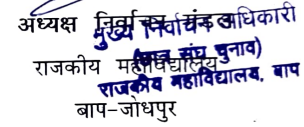 अध्यक्ष निर्वाचन मंडल
मुख्य निर्वाचन अधिकारी
(छात्र संघ चुनाव)
राजकीय महाविद्यालय
राजकीय महाविद्यालय, बाप
बाप-जोधपुर